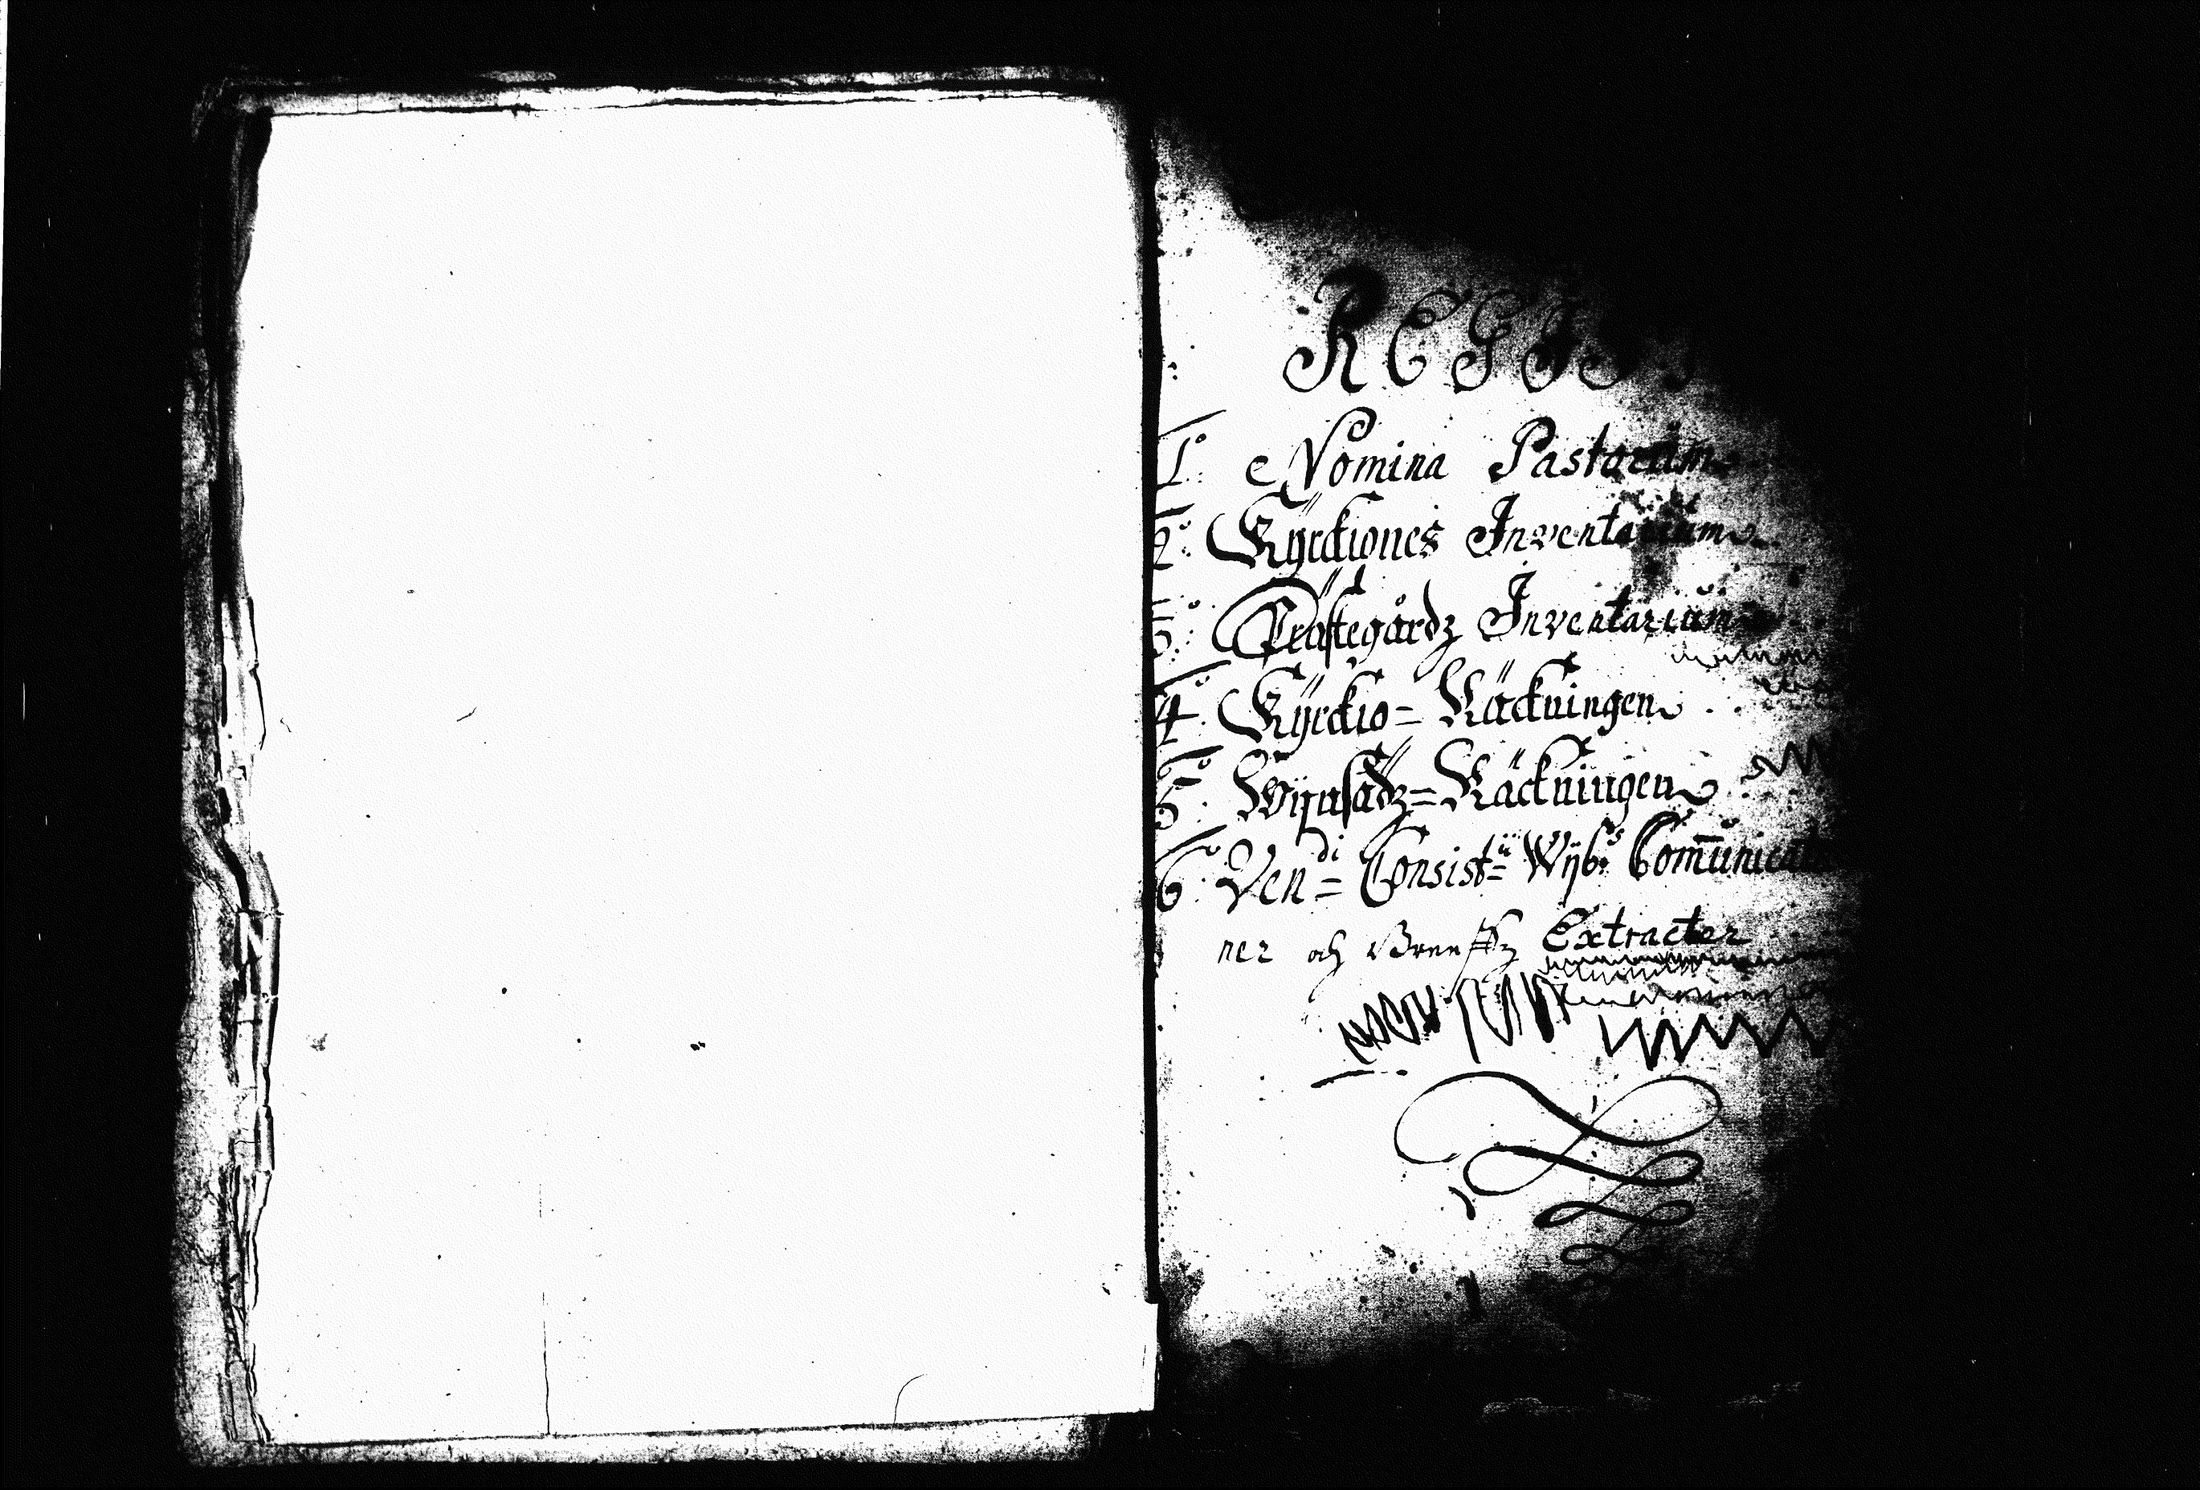 REGIS
1.º Nomina Pastorum
2.º Kÿrckiones Inventarium
3.º Prästegårdz Inventarium
4.º Kÿrckio= Räckningen
5.º Wijnsädz=Räckningen
6.º Ven=di Consist=ii Wijb:s Com̄unicat
ner och Extracter